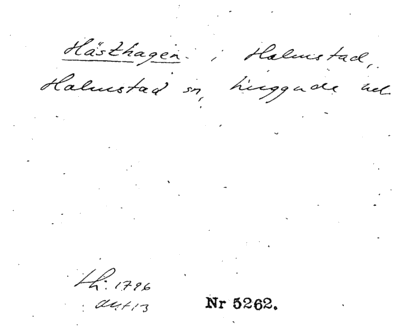 Hästhagen i Halmstad,
Halmstad sn, huggude ut
Lk: 1796
art 13
Nr 5262.